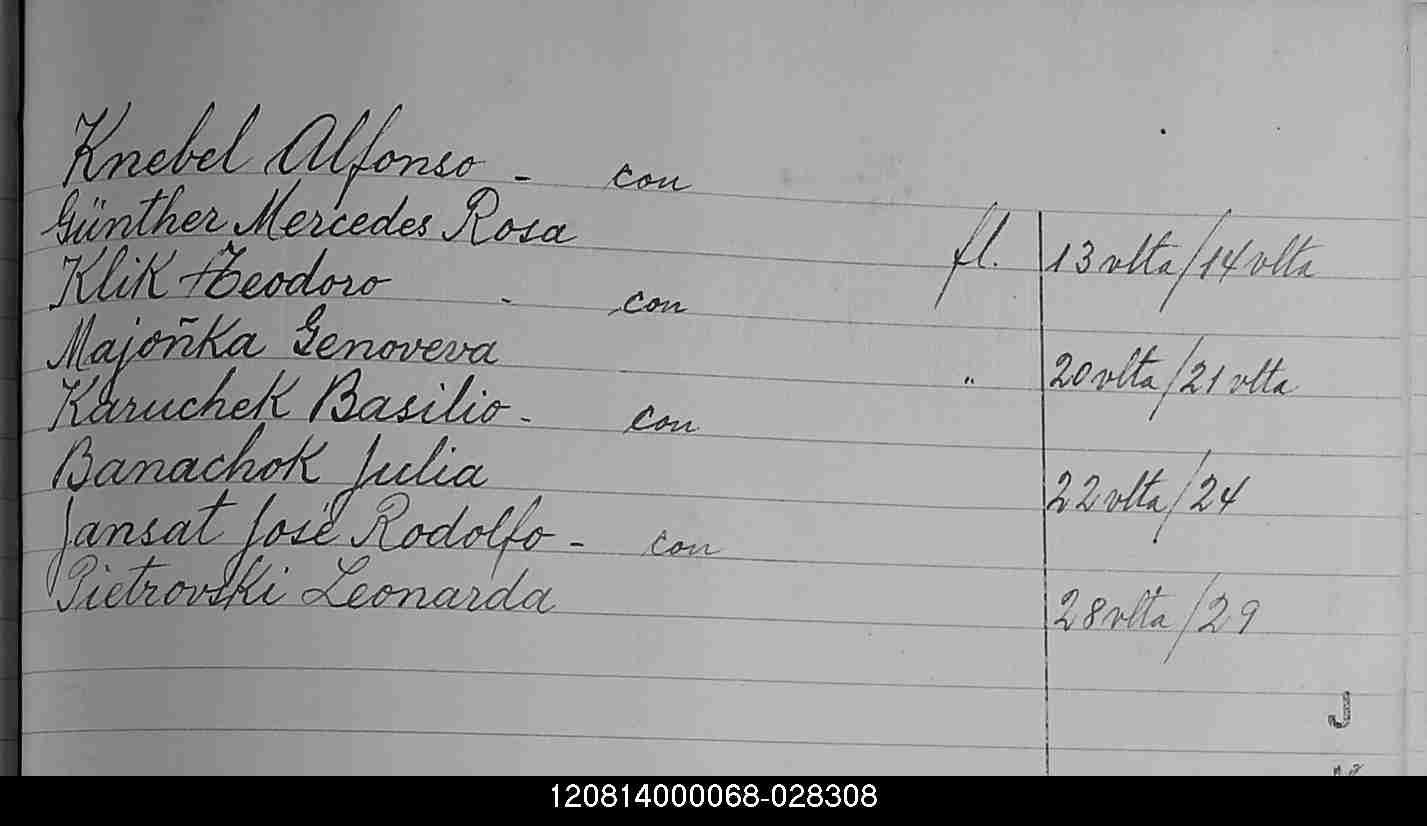 Knebel Alfonso - con
Günther Mercedes Rosa fl. 13 vlta/14 vlta
Klik Teodoro - con
Majoñka Genoveva " 20 vlta/21 vlta
Karuchek Basilio - con
Banachok Julia 22 vlta/24
Jansat José Rodolfo - con
Pietrovski Leonarda 28 vlta/29
J
120814000068-028308